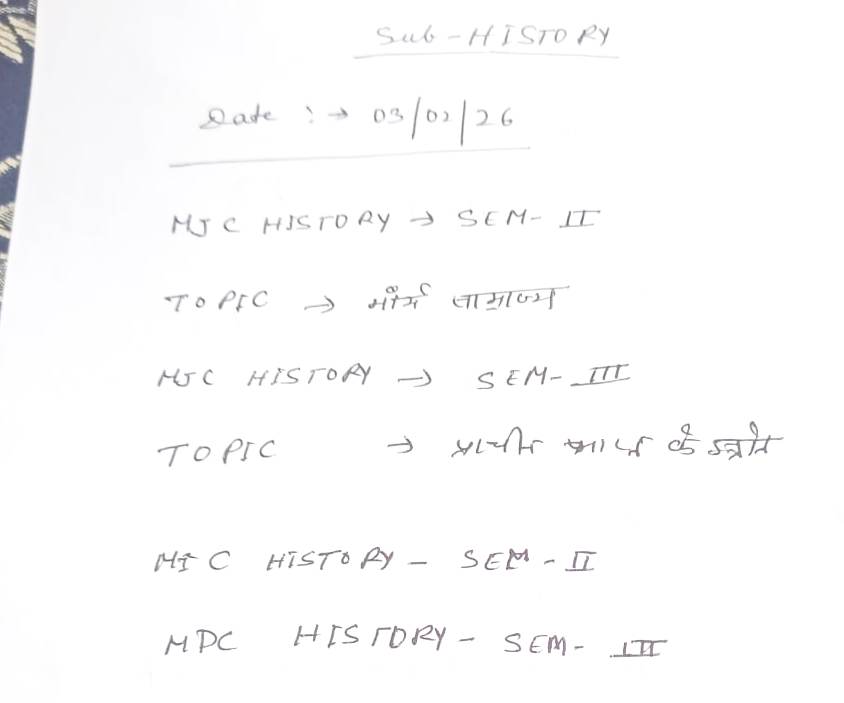 Sub - HISTORY
Date :→ 03/02/26
MJC HISTORY → SEM- II
TOPIC → मौर्य साम्राज्य
MJC HISTORY → SEM- III
TOPIC → प्राचीन भारत के स्त्रोत
MIC HISTORY - SEM - II
MDC HISTORY - SEM - III